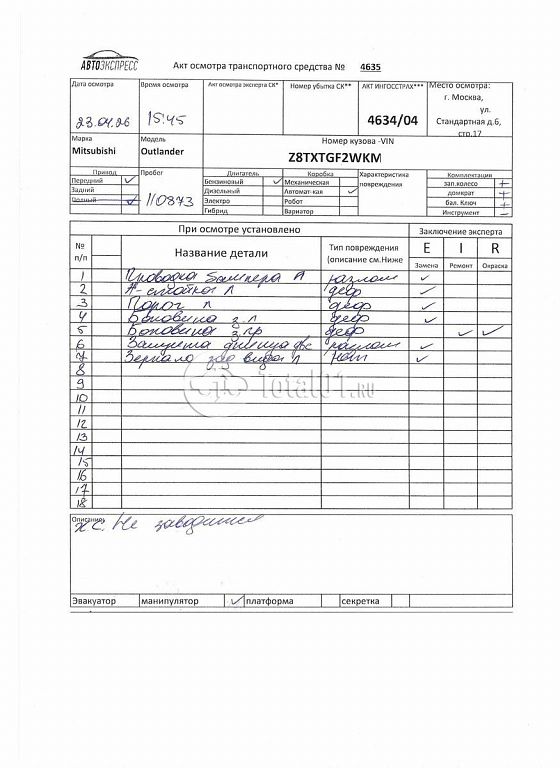 АВТОЭКСПРЕСС
Акт осмотра транспортного средства № 4635
Дата осмотра Время осмотра Акт осмотра эксперта СК* Номер убытка СК** АКТ ИНГОССТРАХ*** Место осмотра:
г. Москва,
ул.
Стандартная д.6,
стр.17
23.04.26 15:45 4634/04
Марка Модель Номер кузова -VIN
Mitsubishi Outlander Z8TXTGF2WKM
Привод Пробег Двигатель Коробка Характеристика повреждения Комплектация
Передний ✓ Бензиновый ✓ Механическая зап.колесо +
Задний Дизельный Автомат-кая домкрат +
Полный 110873 Электро Робот бал. Ключ +
Гибрид Вариатор Инструмент -
При осмотре установлено Заключение эксперта
№ п/п Название детали Тип повреждения (описание см.Ниже E I R
Замена Ремонт Окраска
1 бампера разлом ✓
2 А-стойка л деф ✓
3 Порог л деф ✓
4 Боковина з.л деф ✓
5 Боковина з.пр деф ✓ ✓
6 Защита днища разлом ✓
7 Зеркало зад вида л ✓
8
9
10
11
12
13
14
15
16
17
18
Total01.RU
Описание:
Не заводится
Эвакуатор манипулятор ✓ платформа секретка